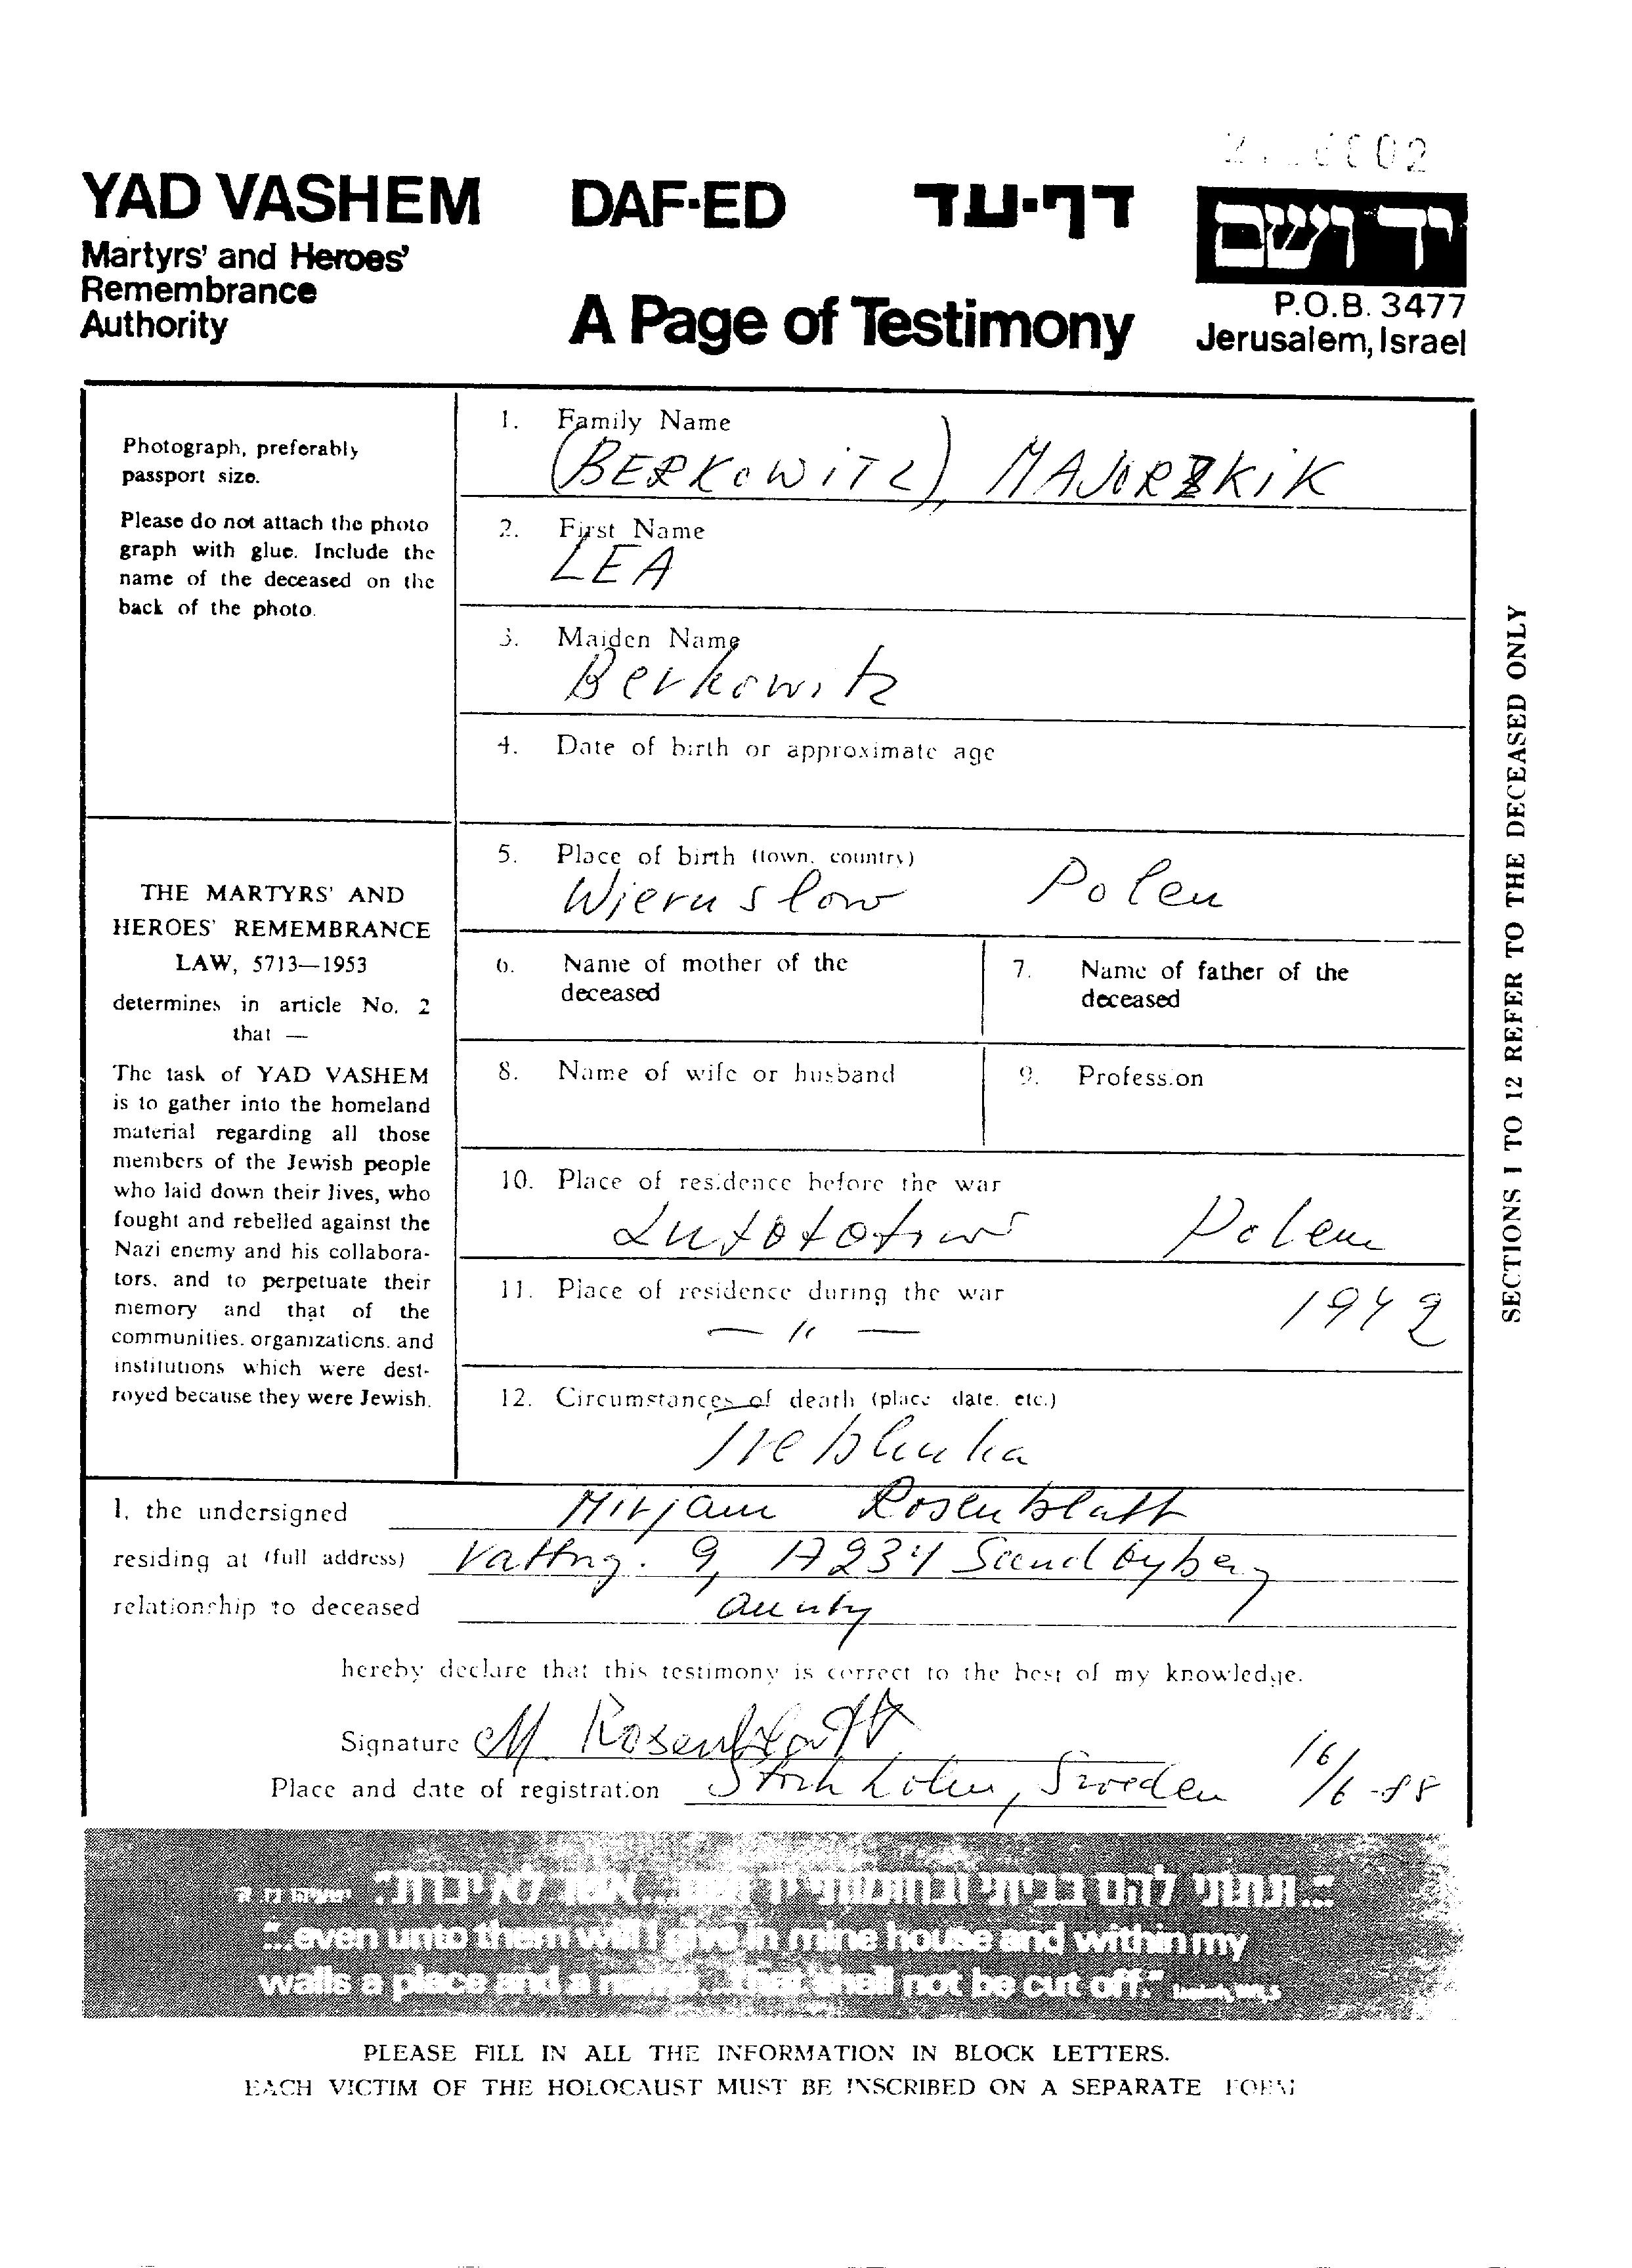 YAD VASHEM DAF-ED דף-עד
ידושם
Martyrs' and Heroes'
Remembrance
Authority
A Page of Testimony
P.O.B. 3477
Jerusalem, Israel
Photograph, preferably
passport size.
Please do not attach the photo
graph with glue. Include the
name of the deceased on the
back of the photo.
THE MARTYRS' AND
HEROES' REMEMBRANCE
LAW, 5713—1953
determines in article No. 2
that —
The task of YAD VASHEM
is to gather into the homeland
material regarding all those
members of the Jewish people
who laid down their lives, who
fought and rebelled against the
Nazi enemy and his collabora-
tors, and to perpetuate their
memory and that of the
communities, organizations, and
institutions which were dest-
royed because they were Jewish.
1. Family Name
(BERKOWITZ), MAJORZKIK
2. First Name
LEA
3. Maiden Name
Berkowitz
4. Date of birth or approximate age
5. Place of birth (town, country)
Wieruslow Polen
6. Name of mother of the
deceased
7. Name of father of the
deceased
8. Name of wife or husband
9. Profession
10. Place of residence before the war
Lutototow Polen
11. Place of residence during the war
— " — 1942
12. Circumstances of death (place, date, etc.)
Treblinka
SECTIONS 1 TO 12 REFER TO THE DECEASED ONLY
I, the undersigned Mirjam Rosenblatt
residing at (full address) Vattng. 9, 17234 Sundbyberg
relationship to deceased aunty
hereby declare that this testimony is correct to the best of my knowledge.
Signature M. Rosenblatt
Place and date of registration Stockholm, Sweden 16/6-88
"...ונתתי להם בביתי ובחומותי יד ושם...אשר לא יכרת". ישעיהו נו, ה
"...even unto them will I give in mine house and within my
walls a place and a name...that shall not be cut off."
PLEASE FILL IN ALL THE INFORMATION IN BLOCK LETTERS.
EACH VICTIM OF THE HOLOCAUST MUST BE INSCRIBED ON A SEPARATE FORM